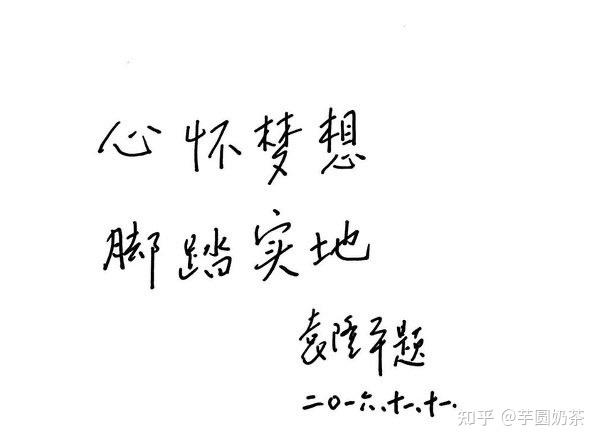 心怀梦想
脚踏实地
袁隆平题
二〇一六、十一、十一.
知乎 @芋圆奶茶